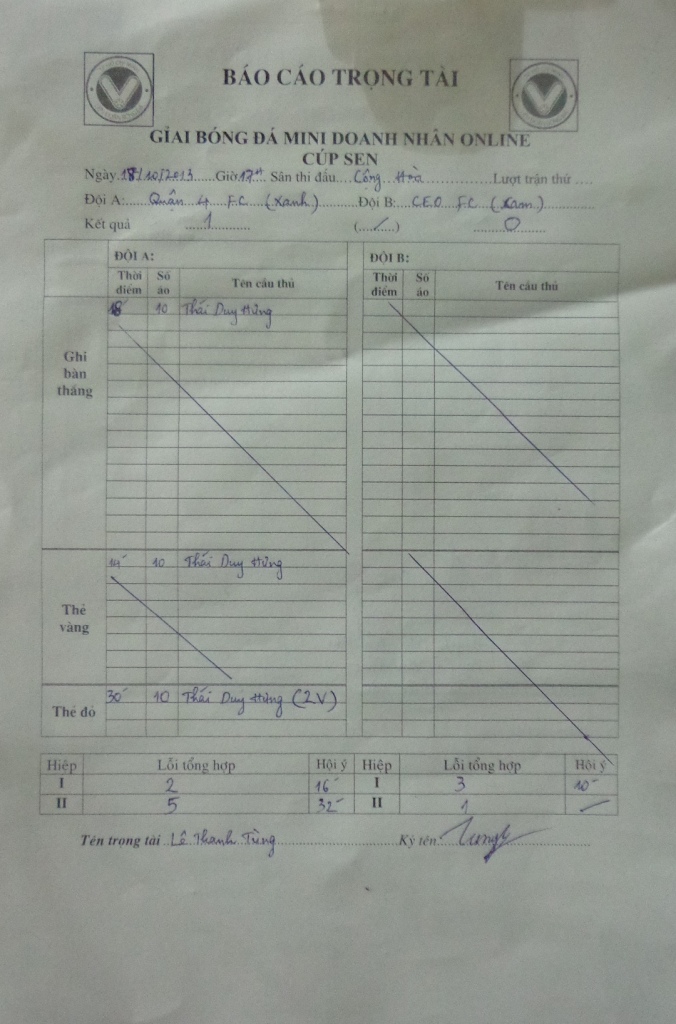 BÁO CÁO TRỌNG TÀI
GIẢI BÓNG ĐÁ MINI DOANH NHÂN ONLINE
CÚP SEN
Ngày 18/10/2013 Giờ 17 Sân thi đấu Cộng Hòa Lượt trận thứ
Đội A: Quận 4 FC (Xanh) Đội B: CEO FC (Xam)
Kết quả 1 ( / ) 0
ĐỘI A: ĐỘI B:
Thời điểm Số áo Tên cầu thủ Thời điểm Số áo Tên cầu thủ
Ghi bàn thắng 10 Thái Duy Hưng
Thẻ vàng 10 Thái Duy Hưng
Thẻ đỏ 30' 10 Thái Duy Hưng (2V)
Hiệp Lỗi tổng hợp Hội ý Hiệp Lỗi tổng hợp Hội ý
I 2 16' I 3 10'
II 5 32' II 1 /
Tên trọng tài Lê Thanh Tùng Ký tên Tung